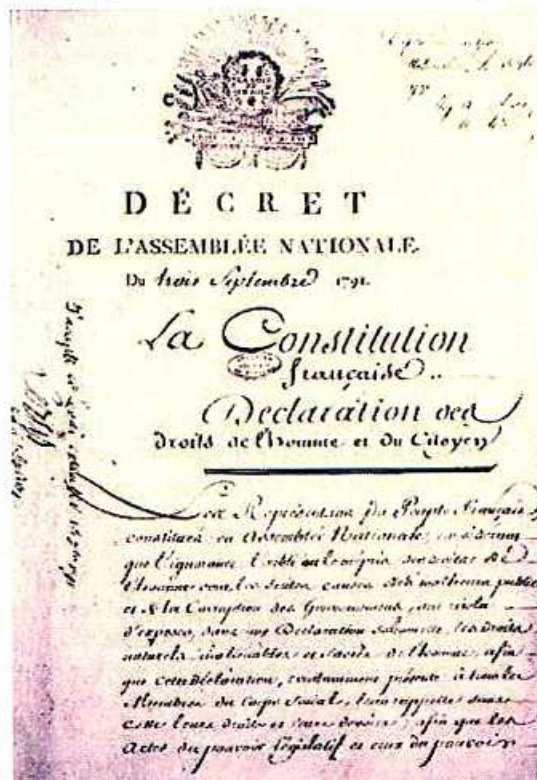 DÉCRET
DE L'ASSEMBLÉE NATIONALE.
Du trois Septembre 1791.
La Constitution
française..
Déclaration des
droits de l'homme et du Citoyen
Les Représentans du Peuple Français,
constitués en Assemblée Nationale, considérant
que l'ignorance, l'oubli ou le mépris des droits de
l'homme sont les seules causes des malheurs publics
et de la Corruption des Gouvernemens, ont résolu
d'exposer, dans une Déclaration solennelle, les droits
naturels, inaliénables et sacrés de l'homme, afin
que cette Déclaration, constamment présente à tous les
Membres du Corps Social, leur rappelle sans
cesse leurs droits et leurs devoirs; afin que les
Actes du pouvoir législatif et ceux du pouvoir